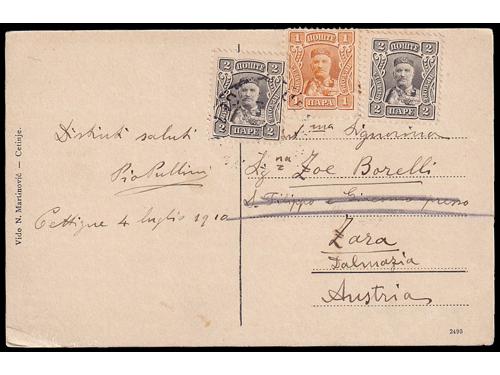 2 ПОШТЕ 2
2 ПАРЕ 2
1 ПОШТЕ 1
1 ПАРА 1
2 ПОШТЕ 2
2 ПАРЕ 2
Distinti saluti
Pio Pullini
Cettigne 4 luglio 1910
ma Signorina
Sig na Zoe Borelli
S. Filippo e Giacomo presso
Zara
Dalmazia
Austria
Vido N. Martinović — Cetinje.
2495